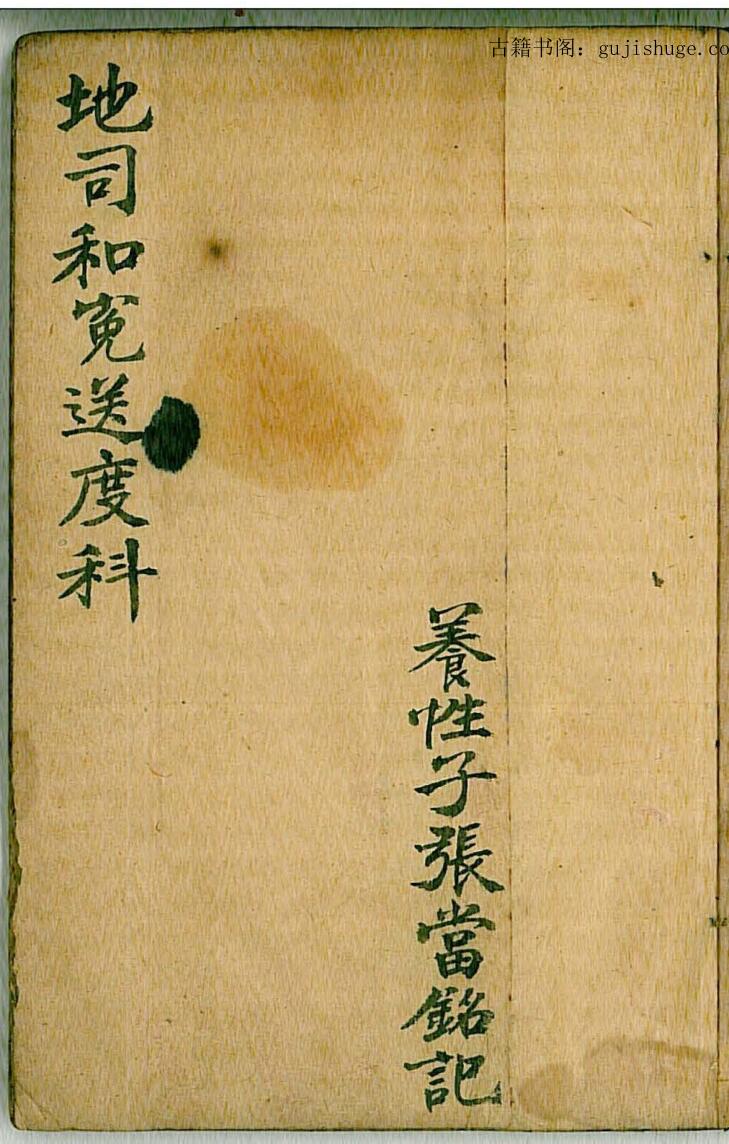 古籍书阁：gujishuge.co
地司和冤送度科
養性子張當銘記